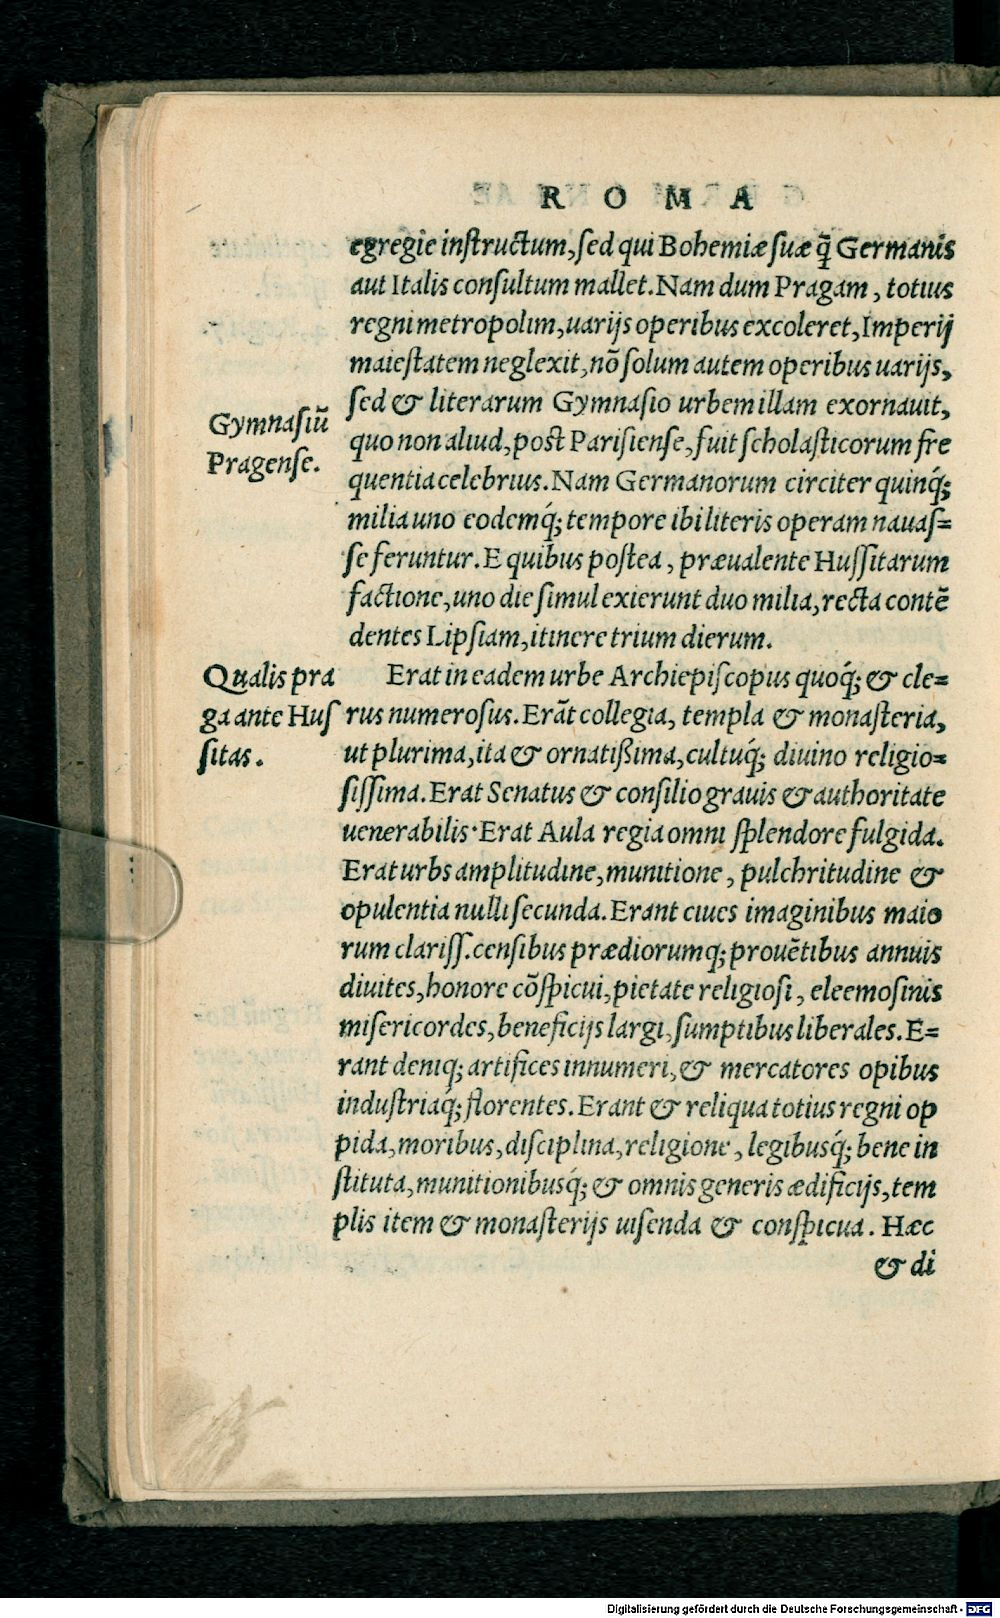 ROMA
egregie instructum, sed qui Bohemiæ suæ q̃ Germanis
aut Italis consultum mallet. Nam dum Pragam, totius
regni metropolim, uarijs operibus excoleret, Imperij
maiestatem neglexit, nõ solum autem operibus uarijs,
sed & literarum Gymnasio urbem illam exornauit,
Gymnasiũ
Pragense.
quo non aliud, post Parisiense, fuit scholasticorum fre
quentia celebrius. Nam Germanorum circiter quinq́;
milia uno eodemq́; tempore ibi literis operam nauas=
se feruntur. E quibus postea, præualente Hussitarum
factione, uno die simul exierunt duo milia, recta contẽ
dentes Lipsiam, itinere trium dierum.
Qualis pra
ga ante Hus
sitas.
Erat in eadem urbe Archiepiscopus quoq́; & cle=
rus numerosus. Erãt collegia, templa & monasteria,
ut plurima, ita & ornatißima, cultuq́; diuino religio=
sissima. Erat Senatus & consilio grauis & authoritate
uenerabilis. Erat Aula regia omni splendore fulgida.
Erat urbs amplitudine, munitione, pulchritudine &
opulentia nulli secunda. Erant ciues imaginibus maio
rum clariss. censibus prædiorumq; prouẽtibus annuis
diuites, honore cõspicui, pietate religiosi, eleemosinis
misericordes, beneficijs largi, sumptibus liberales. E=
rant deniq; artifices innumeri, & mercatores opibus
industriaq́; florentes. Erant & reliqua totius regni op
pida, moribus, disciplina, religione, legibusq́; bene in
stituta, munitionibusq́; & omnis generis ædificijs, tem
plis item & monasterijs uisenda & conspicua. Hæc
& di
Digitalisierung gefördert durch die Deutsche Forschungsgemeinschaft - DFG